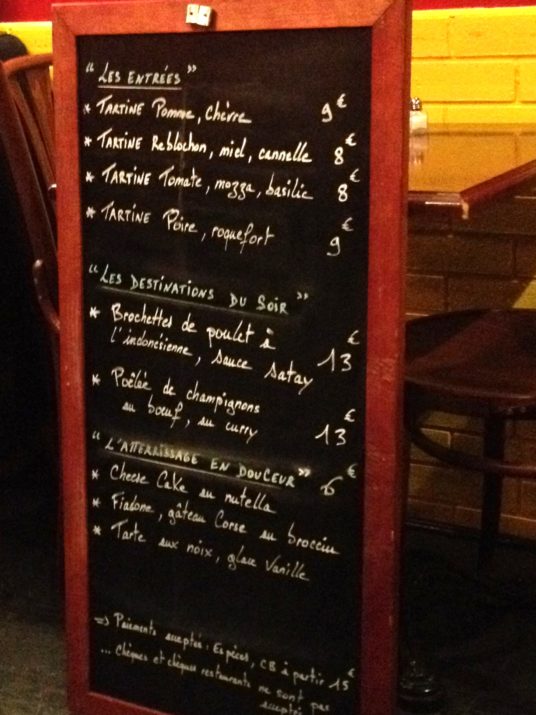 " LES ENTRÉES "
* TARTINE Pomme, chèvre 9€
* TARTINE Reblochon, miel, cannelle 8€
* TARTINE Tomate, mozza, basilic 8€
* TARTINE Poire, roquefort 9€
" LES DESTINATIONS DU SOIR "
* Brochettes de poulet à
l'indonésienne, sauce satay 13€
* Poêlée de champignons
au boeuf, au curry 13€
" L'ATTERRISSAGE EN DOUCEUR " 6€
* Cheese Cake au nutella
* Fiadone, gâteau Corse au brocciu
* Tarte aux noix, glace Vanille
=> Paiements acceptés : Espèces, CB à partir 15€
... chèques et chèques restaurants ne sont pas
acceptés